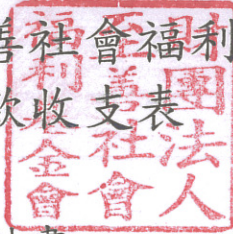 善社會福利
款收支表
財團法人
至善社會
福利基金會